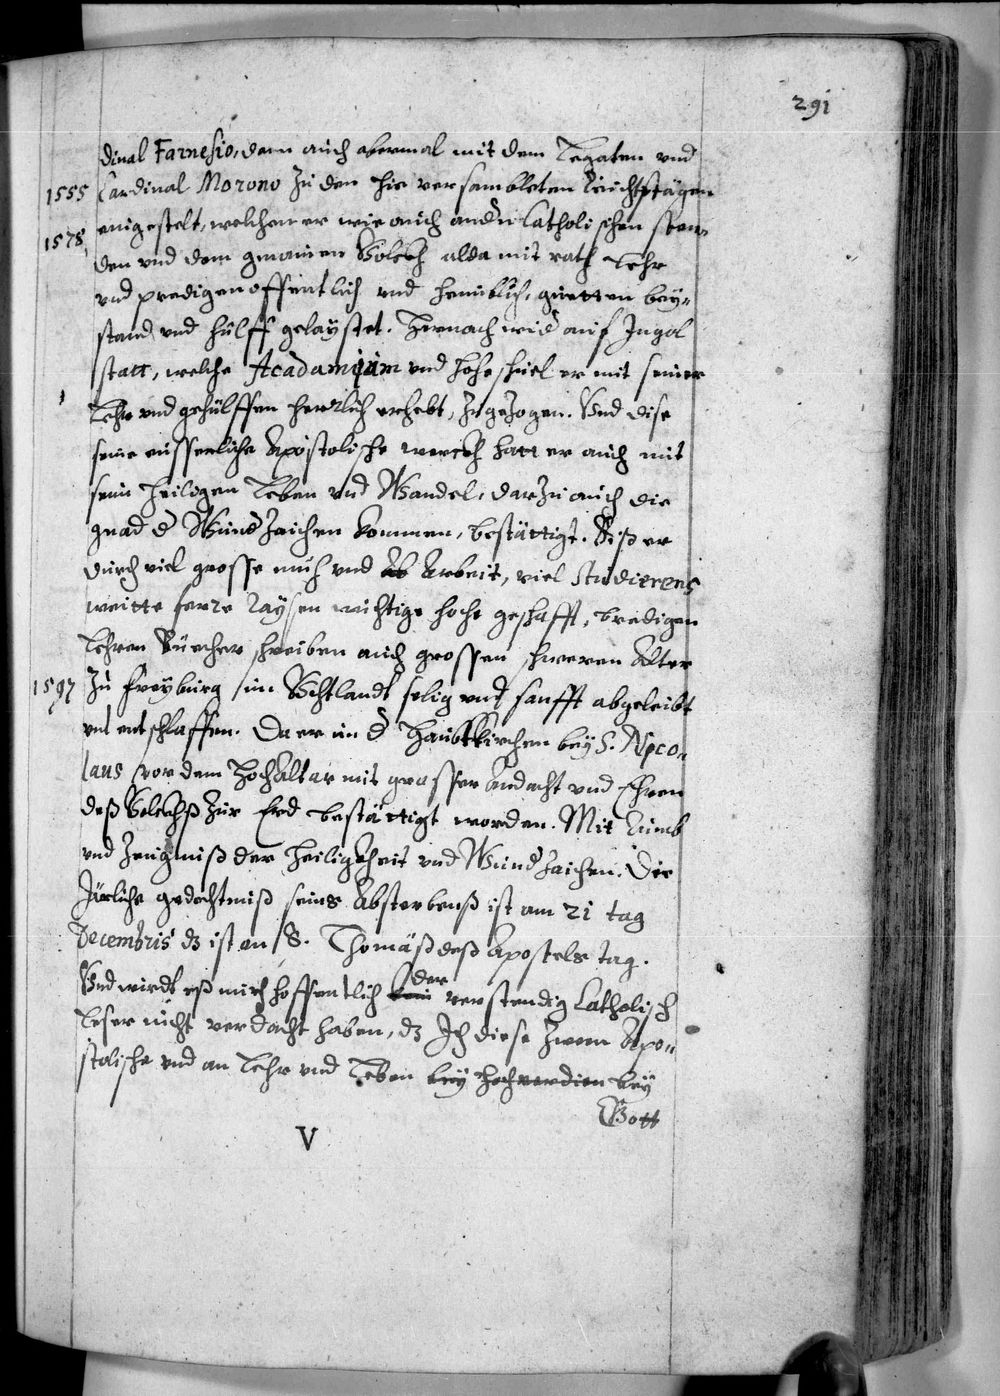 291
dinal Farnesio, dann auch abermal mit dem Legaten und
1555 Cardinal Morono zu den hie versambleten Reichstägen
1578, eingestelt, welchen er wie auch andn Catholischen sten-
den und dem gmainen Volckh alda mit rath Lehr
und predigen offentlich und heimblich, guetten bey=
stand und hülff gelaystet. Hernach wid auf Ingol
statt, welche Academiam und hohe shuel er mit seiner
Lehr und gehülffen herrlich erhebt, zugezogen. Und dise
seine eusserliche Apostolische werckh hatt er auch mit
seim heiligen Leben und Wandel, darzu auch die
gnad d Wundzaichen kommen, bestättigt. Biß er
durch viel grosse mueh und Arbeit, viel Studierens
weitte ferre Raysen wichtige hoche geshafft, bredigen
Lehren Büecher shreiben auch grossen shweren Alter
1597 zu Freyburg im Üchtlandt selig und sanfft abgeleibt
unt entshlaffen. Da er in d Haubtkirchen bey S. Nico-
laus vor dem Hochaltar mit grosser Andacht und Ehren
deß Volckhß zur Erd bestättigt worden. Mit Rumb
und Zeugniß der Heiligkheit und Wundzaichen. Die
Järliche gedechtniß seins Absterbenß ist am 21 tag
Decembris dz ist an S. Thomäß deß Apostels tag.
Und wirdt eß mich hoffentlich der verstendig Catholisch
Leser nicht verdacht haben, dz Ich diese zween Apo=
stolische und an Lehr und Leben bey hochverdien bey
Gott
V